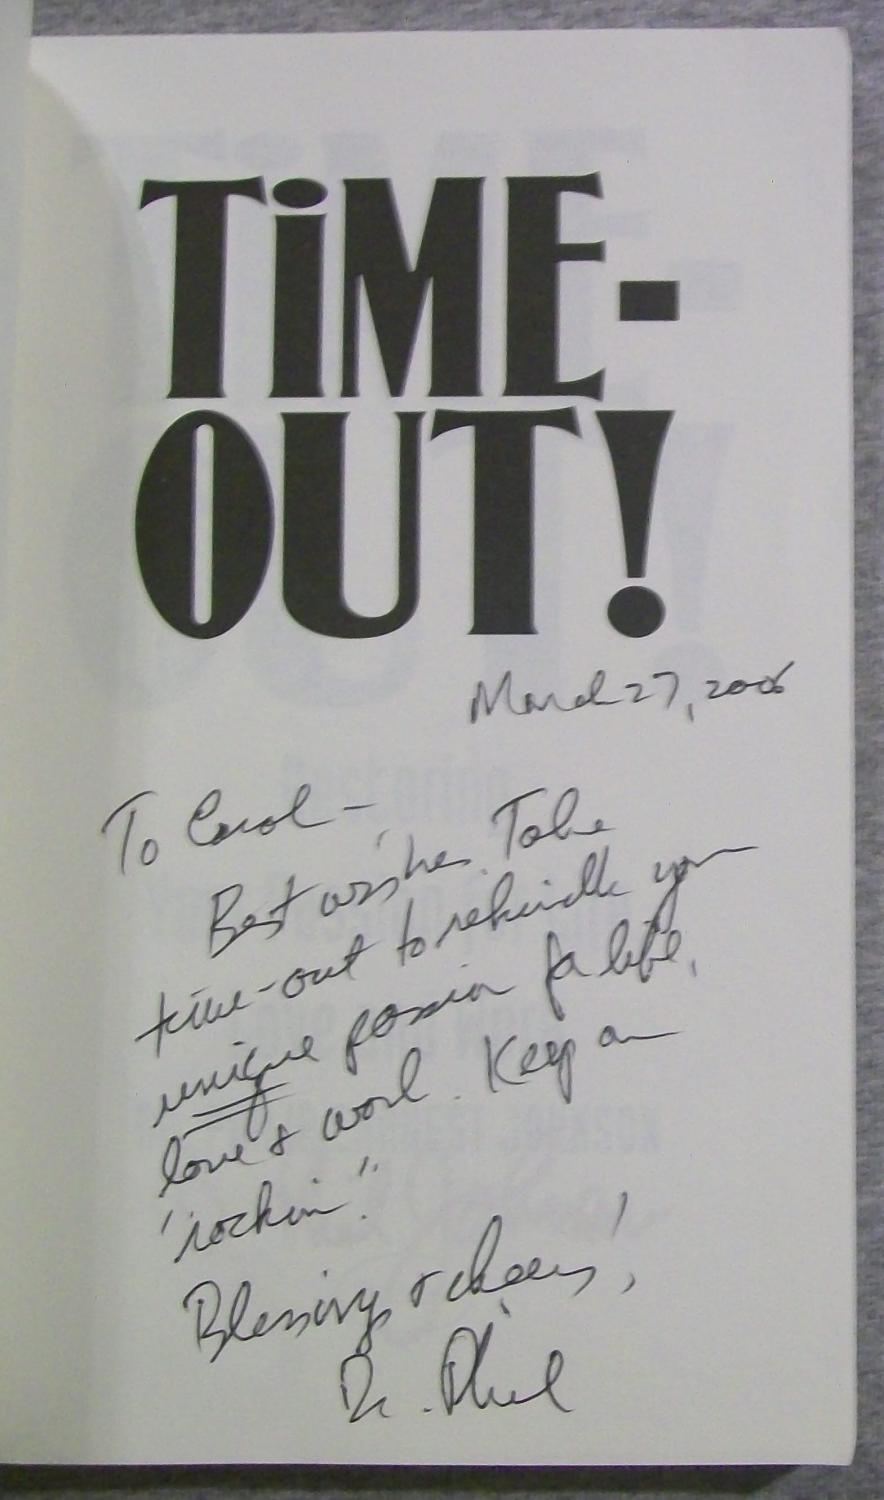 TiME-
OUT!
March 27, 2006
To Carol -
Best wishes. Take
time-out to rekindle your
unique passion for life,
love & work. Keep on
"rockin".
Blessings & cheers!
Dr. Phil